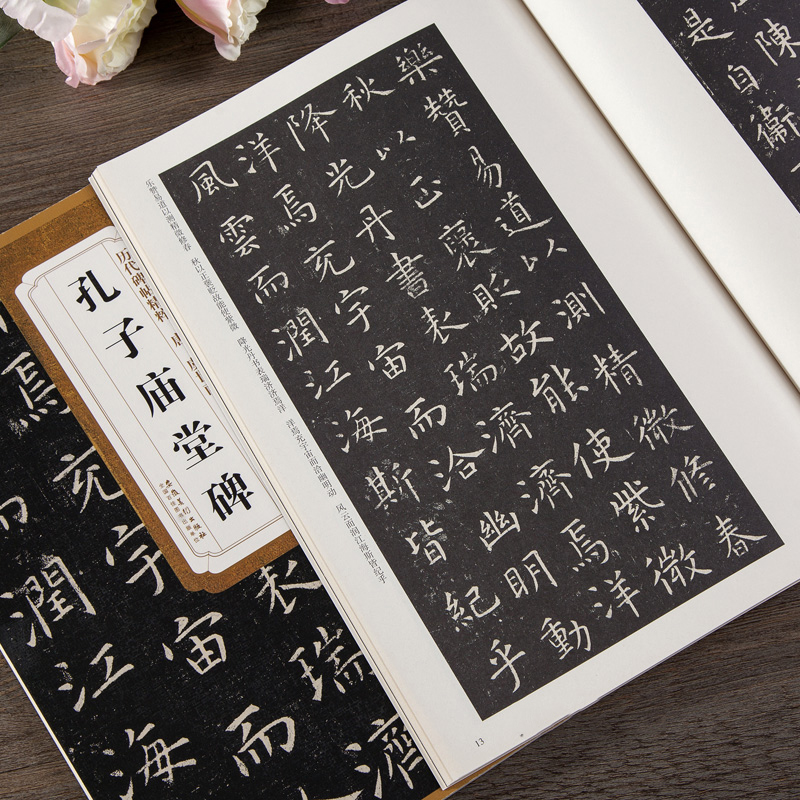 樂贊易道以測精微修春
秋以正褒貶故能使紫微
降光丹書表瑞濟濟焉洋
洋焉充宇宙而洽幽明動
風雲而潤江海斯皆紀乎
乐赞易道以测精微修春 秋以正褒贬故能使紫微 降光丹书表瑞济济焉洋 洋焉充宇宙而洽幽明动 风云而润江海斯皆纪乎
13
陳
是自衛
历代碑帖精粹
孔子庙堂碑
安徽美术出版社
全国百佳图书出版单位
表瑞濟
焉充宇宙而
而潤江海